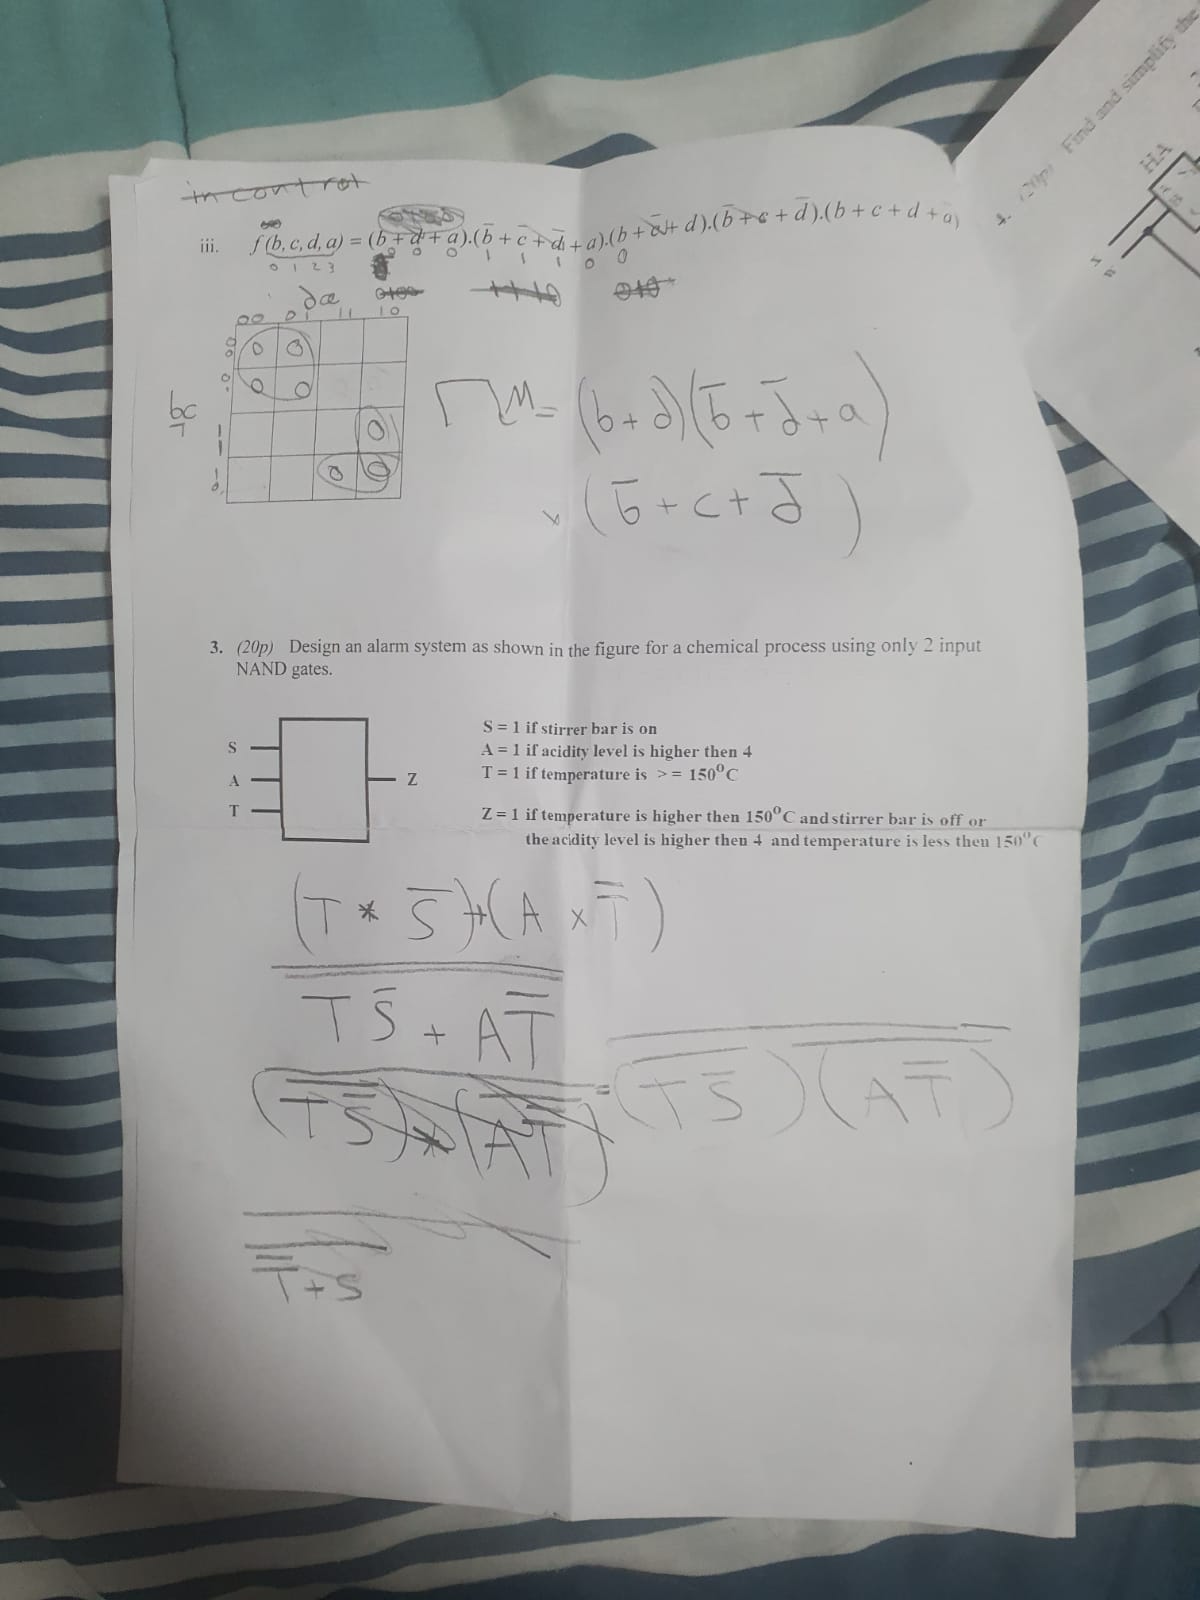 in control
iii. f(b, c, d, a) = (b + d + a).(b̅ + c̅ + d̅ + a).(b + c̅ + d).(b̅ + c + d̅).(b + c + d + a)
0 1 2 3
0 0 0 1 1 1 0 0
da 0100 1110 010
00 01 11 10
00 0 0
01 0 0
bc
11 0
10 0 0
M = (b + d)(b̅ + d̅ + a)
x (b̅ + c + d̅)
3. (20p) Design an alarm system as shown in the figure for a chemical process using only 2 input
NAND gates.
S = 1 if stirrer bar is on
S
A = 1 if acidity level is higher then 4
T = 1 if temperature is >= 150⁰C
A Z
T
Z = 1 if temperature is higher then 150⁰C and stirrer bar is off or
the acidity level is higher then 4 and temperature is less then 150⁰C
(T * S̅)+(A x T̅)
T S̅ + A T̅
(T S̅) * (A T̅) = (T S̅)(A T̅)
T̅ + S
4. (20p) Find and simplify the
HA